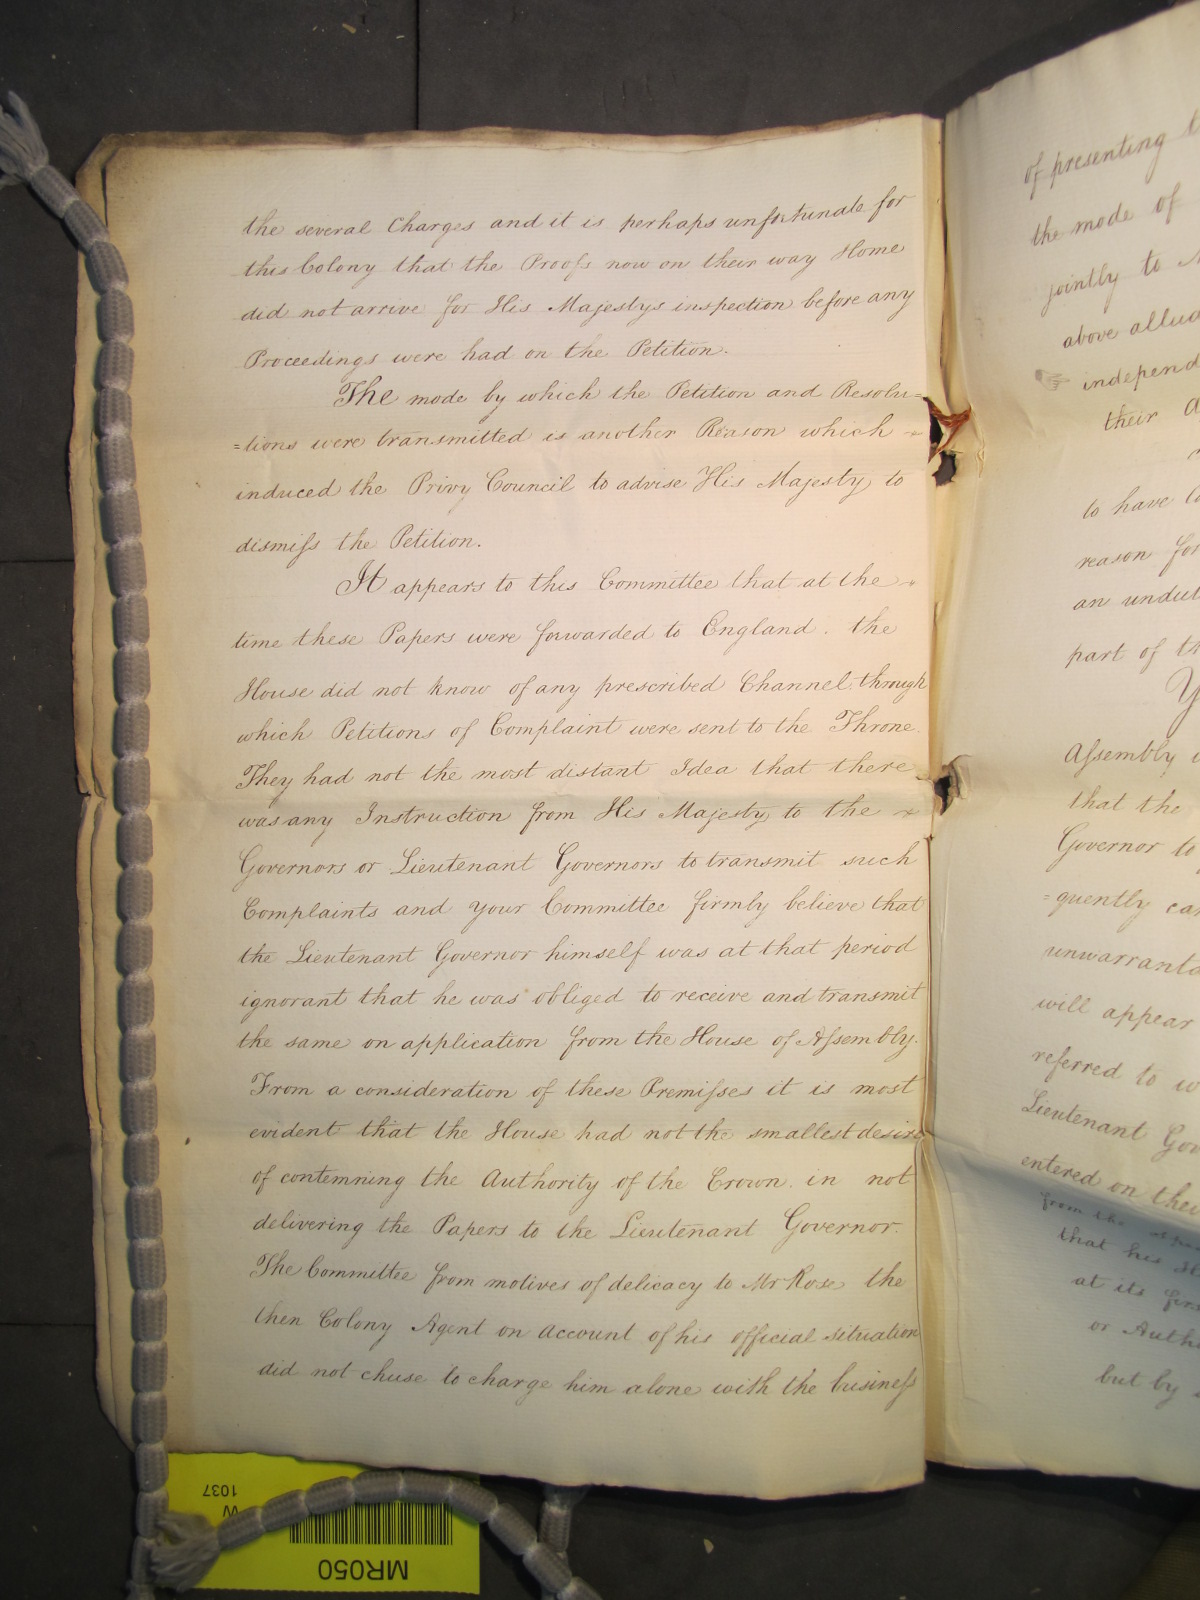 the several Charges and it is perhaps unfortunate for
this Colony that the Proofs now on their way Home
did not arrive for His Majestys inspection before any
Proceedings were had on the Petition.
The mode by which the Petition and Resolu=
=tions were transmitted is another Reason which
induced the Privy Council to advise His Majesty to
dismiſs the Petition.
It appears to this Committee that at the
time these Papers were forwarded to England. the
House did not know of any prescribed Channel through
which Petitions of Complaint were sent to the Throne.
They had not the most distant Idea that there
was any Instruction from His Majesty to the
Governors or Lieutenant Governors to transmit such
Complaints and your Committee firmly believe that
the Lieutenant Governor himself was at that period
ignorant that he was obliged to receive and transmit
the same on application from the House of Aſsembly.
From a consideration of these Premiſses it is most
evident that the House had not the smallest desire
of contemning the Authority of the Crown. in not
delivering the Papers to the Lieutenant Governor.
The Committee from motives of delicacy to Mr Rose the
then Colony Agent on account of his official situation
did not chuse to charge him alone with the busineſs
of presenting
the mode of
jointly to
above allu
independ
their
to have
reason for
an undut
part of th
Aſsembly
that the
Governor to
=quently ca
unwarranta
will appear
referred to w
Lieutenant Gov
entered on their
from the
that his
at its firs
or Auth
but by
MR050
W
1037